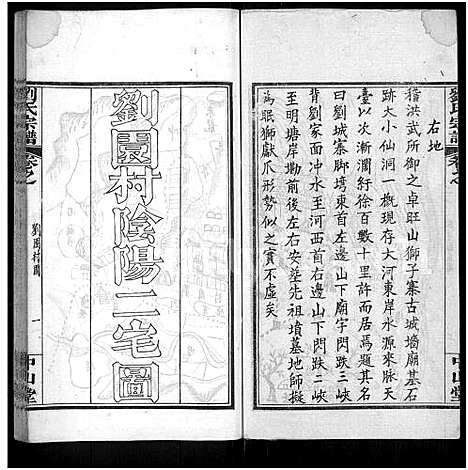 劉氏宗譜
卷之
中山堂
右地
稽洪武所御之卓旺山獅子寨古城墻廟基石
跡大小仙洞一概現存大河東岸水源來脈天
臺以次漸瀾紆徐百數十里許而居為題其名
曰劉城寨脚塆東首左邊山下廟宇閃跌三峽
背劉家面水至河西首右邊山下閃跌二峽
至明塘岸塝前後左右安塟先祖墳墓地師擬
為眠獅獻爪形勢似之實不虛矣
劉園村陰陽二宅圖
劉氏宗譜
卷之
一
中山堂